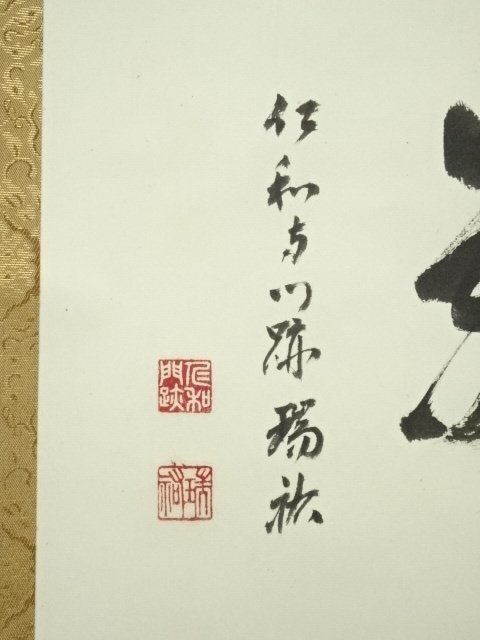 仁和寺門跡瑞祐
仁和門跡
瑞祐